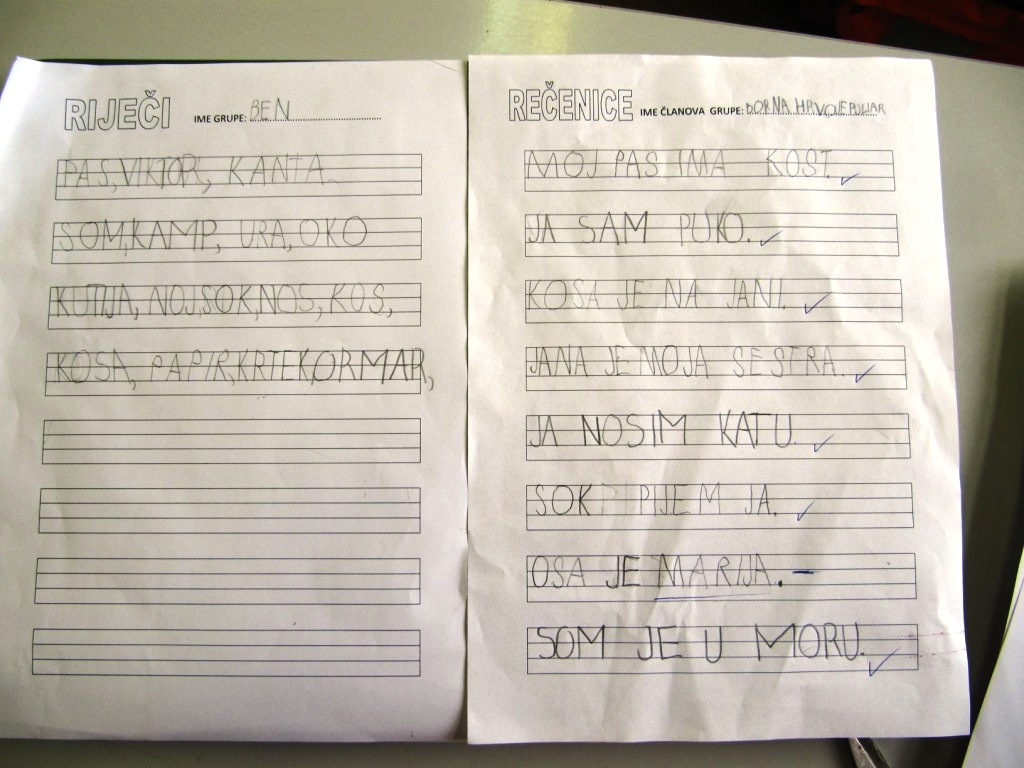 RIJEČI IME GRUPE: BEN
PAS, VIKTOR, KANTA
SOM, KAMP, URA, OKO
KUTIJA, NOJ, SOK, NOS, KOS,
KOSA, PAPIR, KRTEK, ORMAR,
REČENICE IME ČLANOVA GRUPE: DORNA HRVOJE
MOJ PAS IMA KOST.
JA SAM PUKO.
KOSA JE NA JANI.
JANA JE MOJA SESTRA.
JA NOSIM KATU.
SOK PIJEM JA.
OSA JE MARIJA.
SOM JE U MORU.